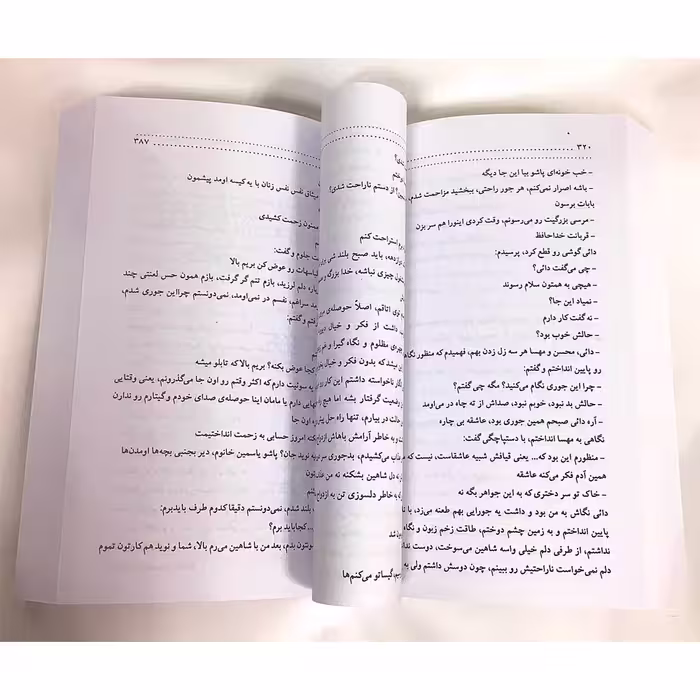 ۳۲۰
- خب خونه‌ای پاشو بیا این جا دیگه
- باشه اصرار نمی‌کنم، هر جور راحتی، ببخشید مزاحمت شدم،
بابات برسون
- مرسی بزرگیت رو می‌رسونم، وقت کردی اینورا هم سر بزن
- قربانت خداحافظ
دائی گوشی رو قطع کرد، پرسیدم:
- چی می‌گفت دائی؟
- هیچی به همتون سلام رسوند
- نمیاد این جا؟
- نه گفت کار دارم
- حالش خوب بود؟
- دائی، محسن و مهسا هر سه زل زدن بهم، فهمیدم که منظور نگاه
رو پایین انداختم و گفتم:
- چرا این جوری نگام می‌کنید؟ مگه چی گفتم؟
- حالش بد نبود، خوبم نبود، صداش از ته چاه در می‌اومد
- آره دائی صبحم همین جوری بود، عاشقه بی چاره
نگاهی به مهسا انداختم، با دستپاچگی گفت:
- منظورم این بود که... یعنی قیافش شبیه عاشقاست، نیست که
همین آدم فکر می‌کنه عاشقه
- خاک تو سر دختری که به این جواهر بگه نه
دائی نگاش به من بود و داشت یه جورایی بهم طعنه می‌زد، با
پایین انداختم و به زمین چشم دوختم، طاقت زخم زبون و نگاه
نداشتم، از طرفی دلم خیلی واسه شاهین می‌سوخت، دوست
دلم نمی‌خواست ناراحتیش رو ببینم، چون دوسش داشتم ولی به
شدی؟
از دستم ناراحت شدی؟
استراحت کنم
باید صبح بلند شی
چیزی نباشه، خدا بزرگه
توی اتاقم، اصلاً حوصله‌ی
داشت از فکر و خیال
مظلوم و نگاه گیرا و
میشد که بدون فکر و خیال
ناخواسته داشتم این کار رو
وضعیت گرفتار بشه اما هیچ
در بیارم، تنها راه حل
به خاطر آرامش باهاش
می‌کشیدم، بدجوری
دل شاهین بشکنه نه من
به خاطر دلسوزی تن به ازدواج
شد
گیساتو می‌کنم‌ها
۳۸۷
میثاق نفس نفس زنان با یه کیسه اومد پیشمون
ممنون زحمت کشیدی
جلوم و گفت:
لباسهات رو عوض کن بریم بالا
دلم لرزید، بازم تنم گر گرفت، بازم همون حس لعنتی چند
سراغم، نفسم در نمی‌اومد، نمی‌دونستم چرا این جوری شدم،
و گفتم:
کجا عوض بکنه؟ بریم بالا که تابلو میشه
یه سوئیت دارم که اکثر وقتم رو اون جا می‌گذرونم، یعنی وقتایی
دارم یا مامان اینا حوصله‌ی صدای خودم و گیتارم رو ندارن
اون جا
امروز حسابی به زحمت انداختیمت
نوید جان؟ پاشو یاسمین خانوم، دیر بجنبی بچه‌ها اومدن‌ها
بلند شدم، نمی‌دونستم دقیقا کدوم طرف باید برم:
... کجا باید برم؟
بدم، بعد من با شاهین می‌رم بالا، شما و نوید هم کارتون تموم